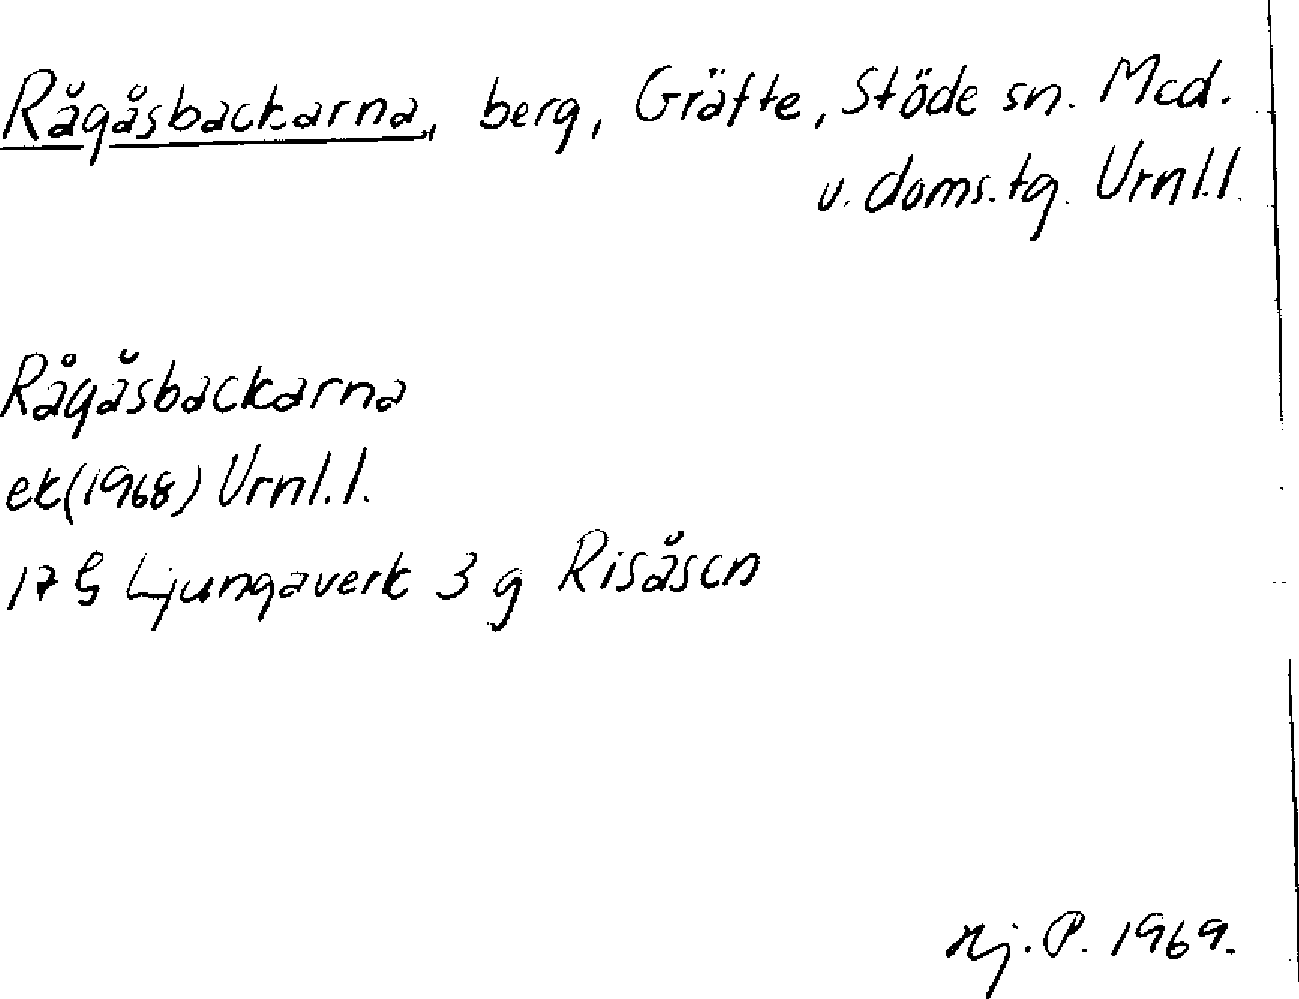 Rågåsbackarna, berg, Gräfte, Stöde sn. Med.
v. doms.tg. Urnl.l.
Rågåsbackarna
ek(1968) Urnl.l.
17 G Ljungaverk 3 g Risåsen
Hj. P. 1969.